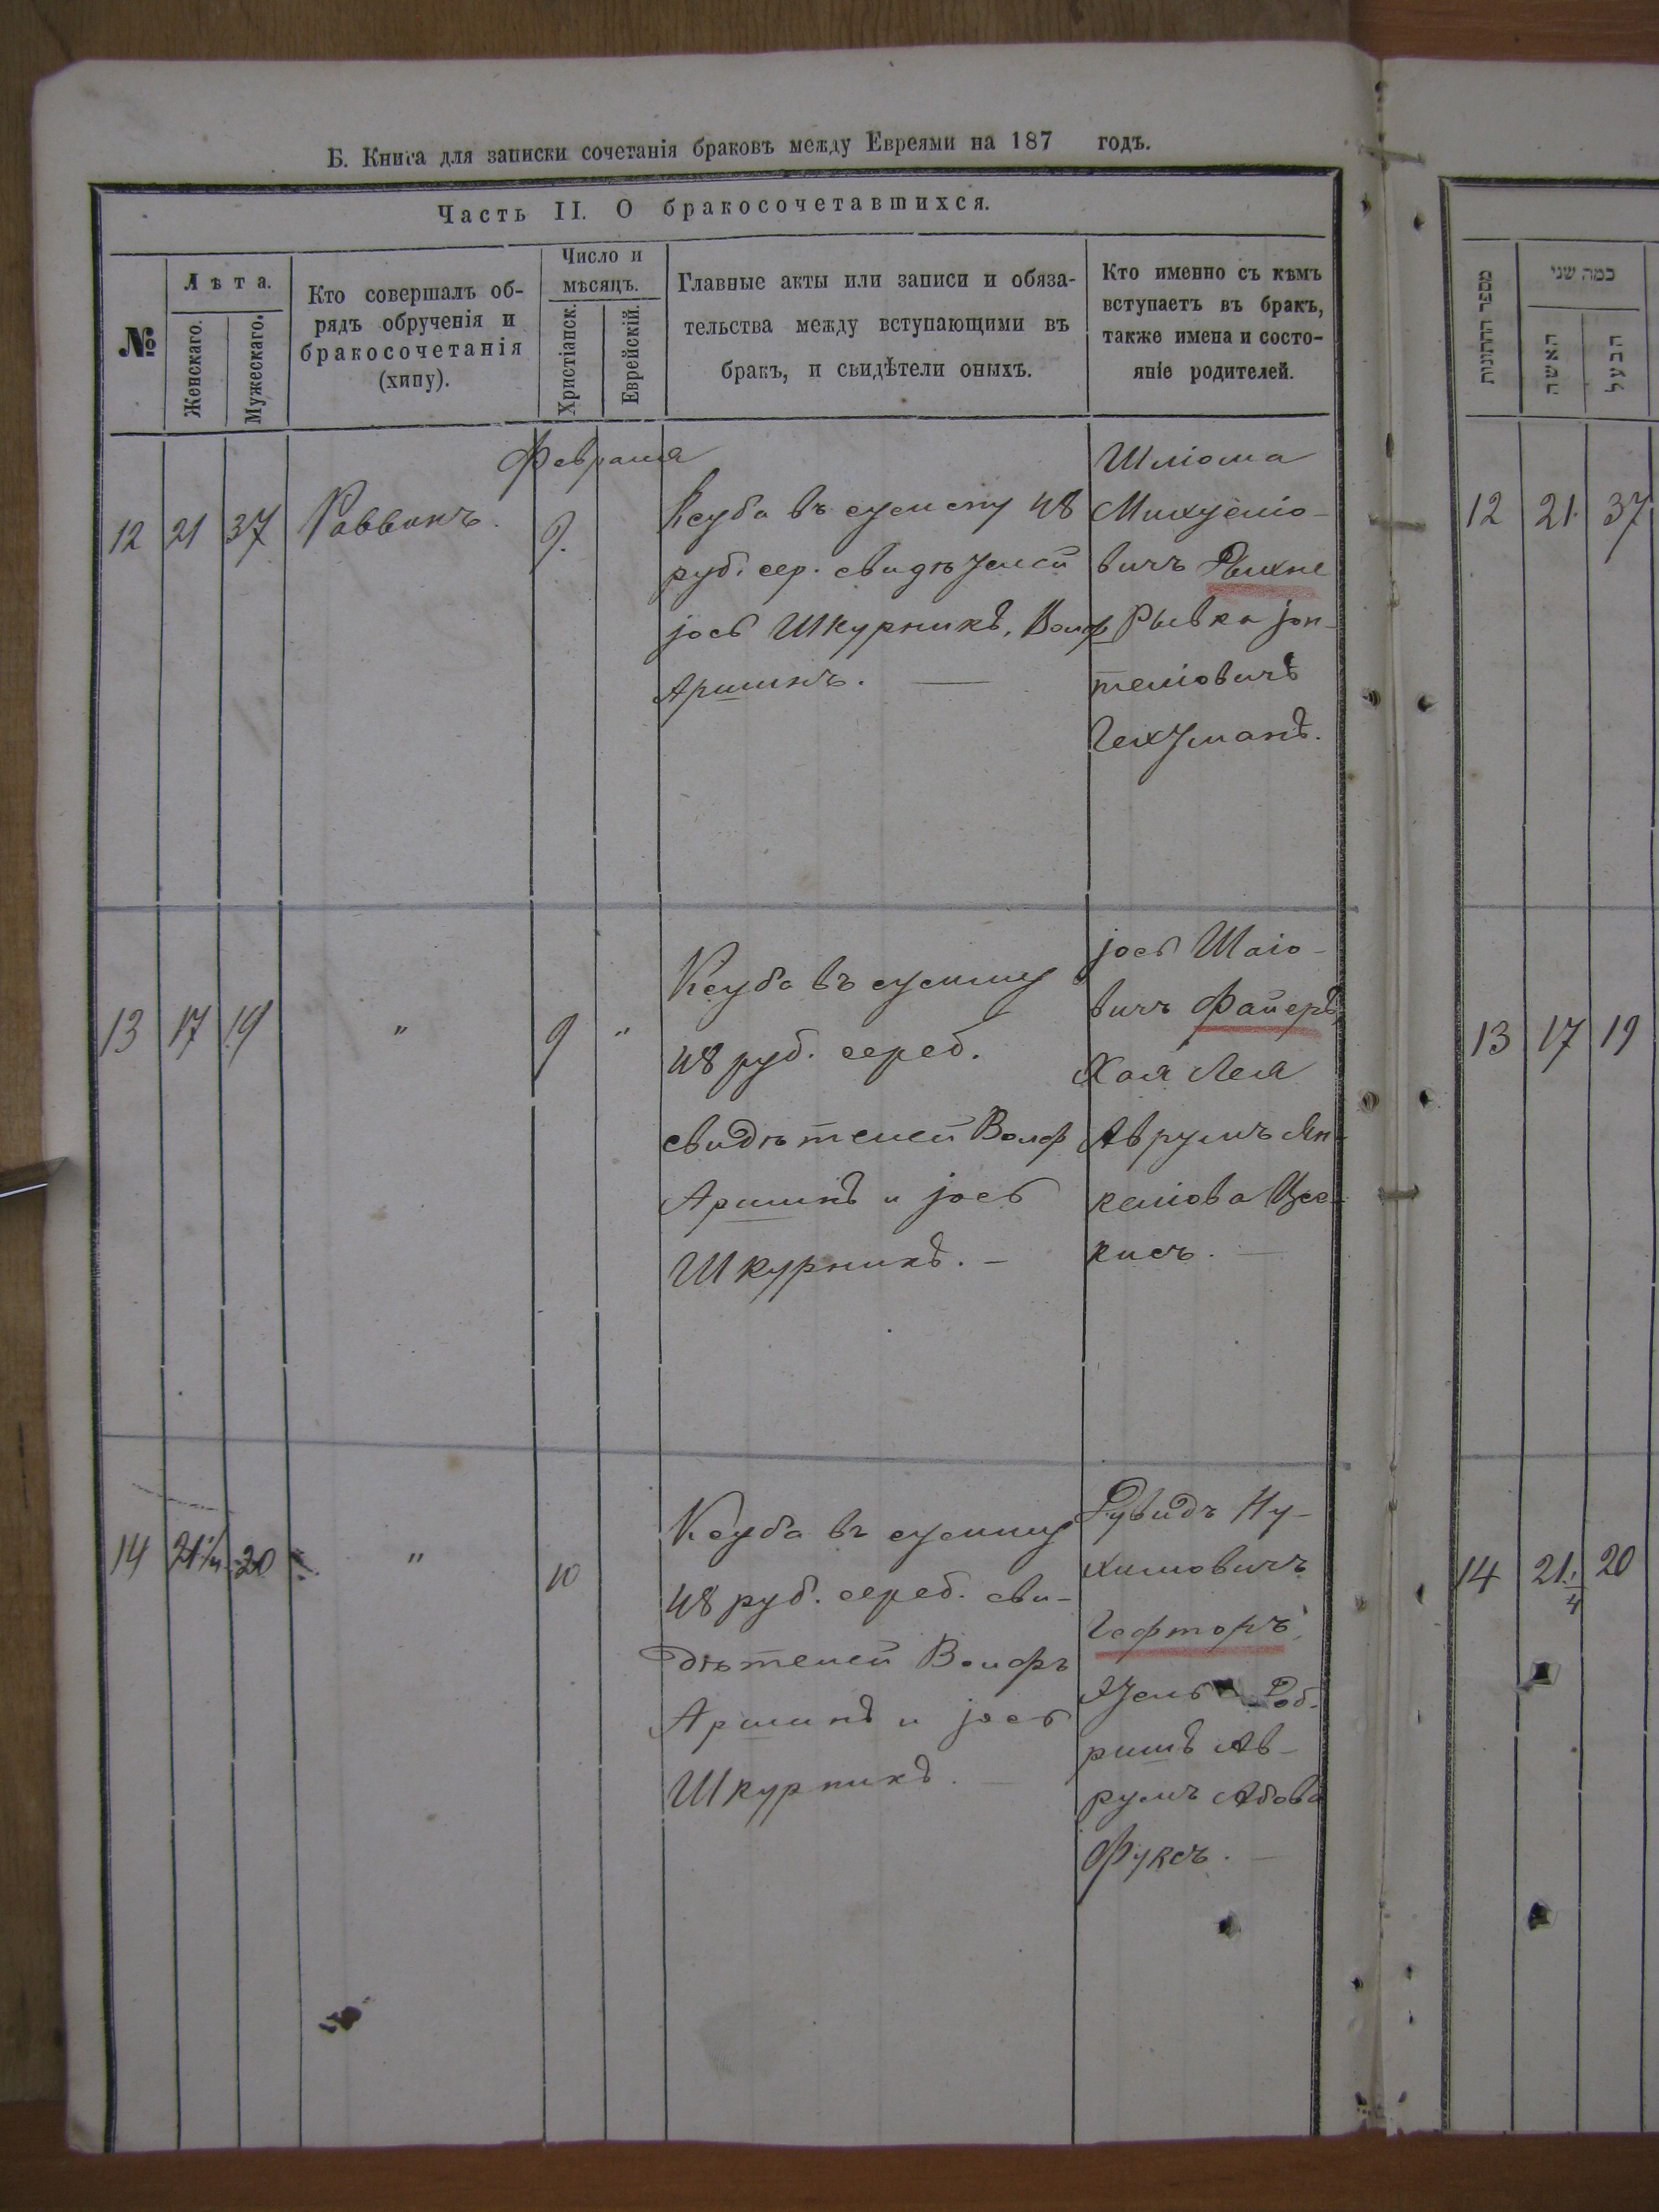 Б. Книга для записки сочетанія браковъ между Евреями на 187 годъ.
Часть II. О бракосочетавшихся.
№
Лѣта.
Женскаго.
Мужескаго.
Кто совершалъ об-
рядъ обрученія и
бракосочетанія
(хипу).
Число и
мѣсяцъ.
Христіанск.
Еврейскій.
Главные акты или записи и обяза-
тельства между вступающими въ
бракъ, и свидѣтели оныхъ.
Кто именно съ кѣмъ
вступаетъ въ бракъ,
также имена и состо-
яніе родителей.
Февраля
12 21 37 Раввинъ. 9.
Ксуба въ сумму 48
руб. сер. свидѣтелей
јосъ Шкурникъ, Волф
Аршинъ. —
Шліома
Михуеліо-
вичъ
Рывка јон-
теліовичъ
13 17 19 " 9 "
Ксуба въ сумму
48 руб. сереб.
свидѣтелей Волф
Аршинъ и јосъ
Шкурникъ. —
јосъ Шаіо-
вичъ Файеръ,
Хая Лея
Аврумъ Ян-
келіова
кисъ. —
14 21¼ 20 " 10
Ксуба въ сумму
48 руб. сереб. сви-
дѣтелей Волфъ
Аршинъ и јосъ
Шкурникъ. —
Рувидъ Ну-
химовичъ
Гефторъ,
Этель
ришъ Ав-
румъ Абова
Фуксъ. —
מספר החתונות
כמה שני
האשה
הבעל
12 21. 37
13 17 19
14 21.¼ 20